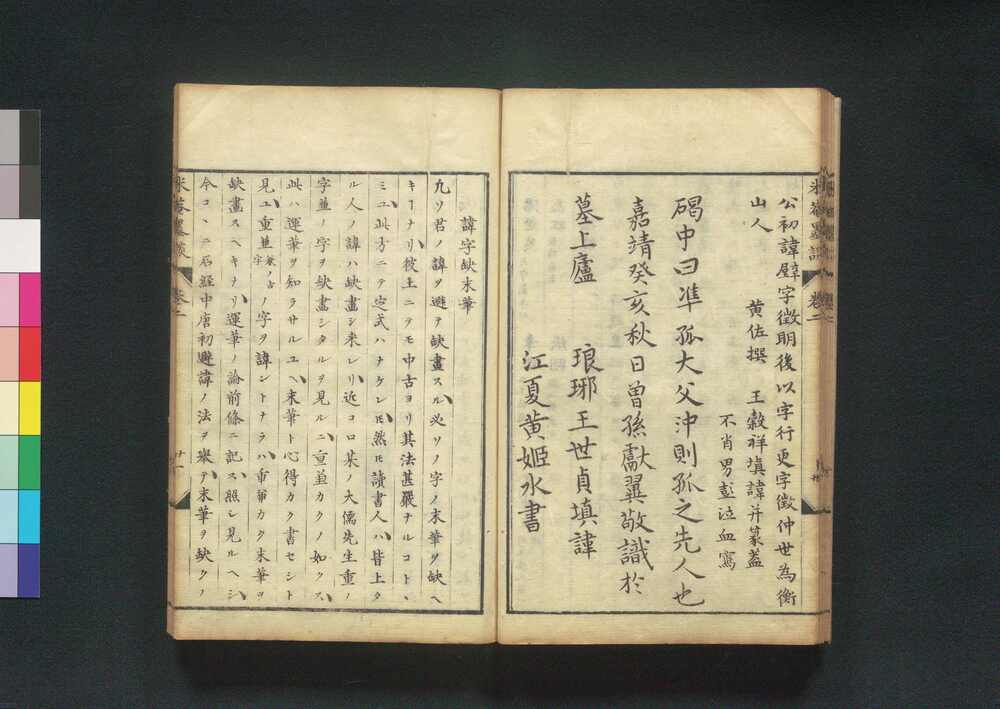 公初諱壁字徵明後以字行更字徵仲世為衡
山人　黄佐撰　王穀祥填諱并篆蓋
不肖男彭泣血寫
碣中曰準孤大父沖則孤之先人也
嘉靖癸亥秋日曾孫獻翼敬識於
墓上廬　琅琊王世貞填諱
江夏黄姬水書
諱字缺末筆
凡ソ君ノ諱ヲ避テ缺畫スル必ソノ字ノ末筆ヲ缺ヘ
キーナリ彼土ニテモ中古ヨリ其法甚嚴ナルコト、
ミユ此方ニテ定式ハナケレ𪜈然𪜈讀書人ハ皆上タ
ル人ノ諱ハ缺畫シ来レリ近コロ某ノ大儒先生重ノ
字並ノ字ヲ缺畫シタルヲ見ルニ重並カクノ如クス、
此ハ運筆ヲ知ラサルユヘ末筆ト心得カク書セシト
見ユ重並ノ字ヲ諱ントナラハ重並カク末筆ヲ
缺畫スヘキナリ運筆ノ論前條ニ記ス照シ見ルヘシ
今コヽニ石経中唐初避諱ノ法ヲ挙テ末筆ヲ缺クノ
米菴墨談　卷二
米菴墨談　卷二　廿一